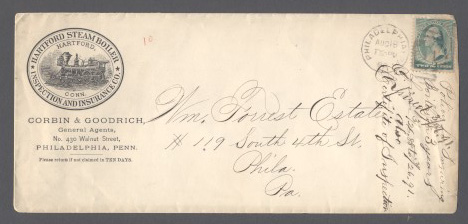 HARTFORD STEAM BOILER
HARTFORD,
CONN.
INSPECTION AND INSURANCE CO.
CORBIN & GOODRICH,
General Agents,
No. 430 Walnut Street,
PHILADELPHIA, PENN.
Please return if not claimed in TEN DAYS.
10
PHILADELPHIA
AUG
Wm. Forrest Estate
# 119 South 4th St,
Phila.
Pa.
3 years
26, 91.
Also
Certificate of Inspection